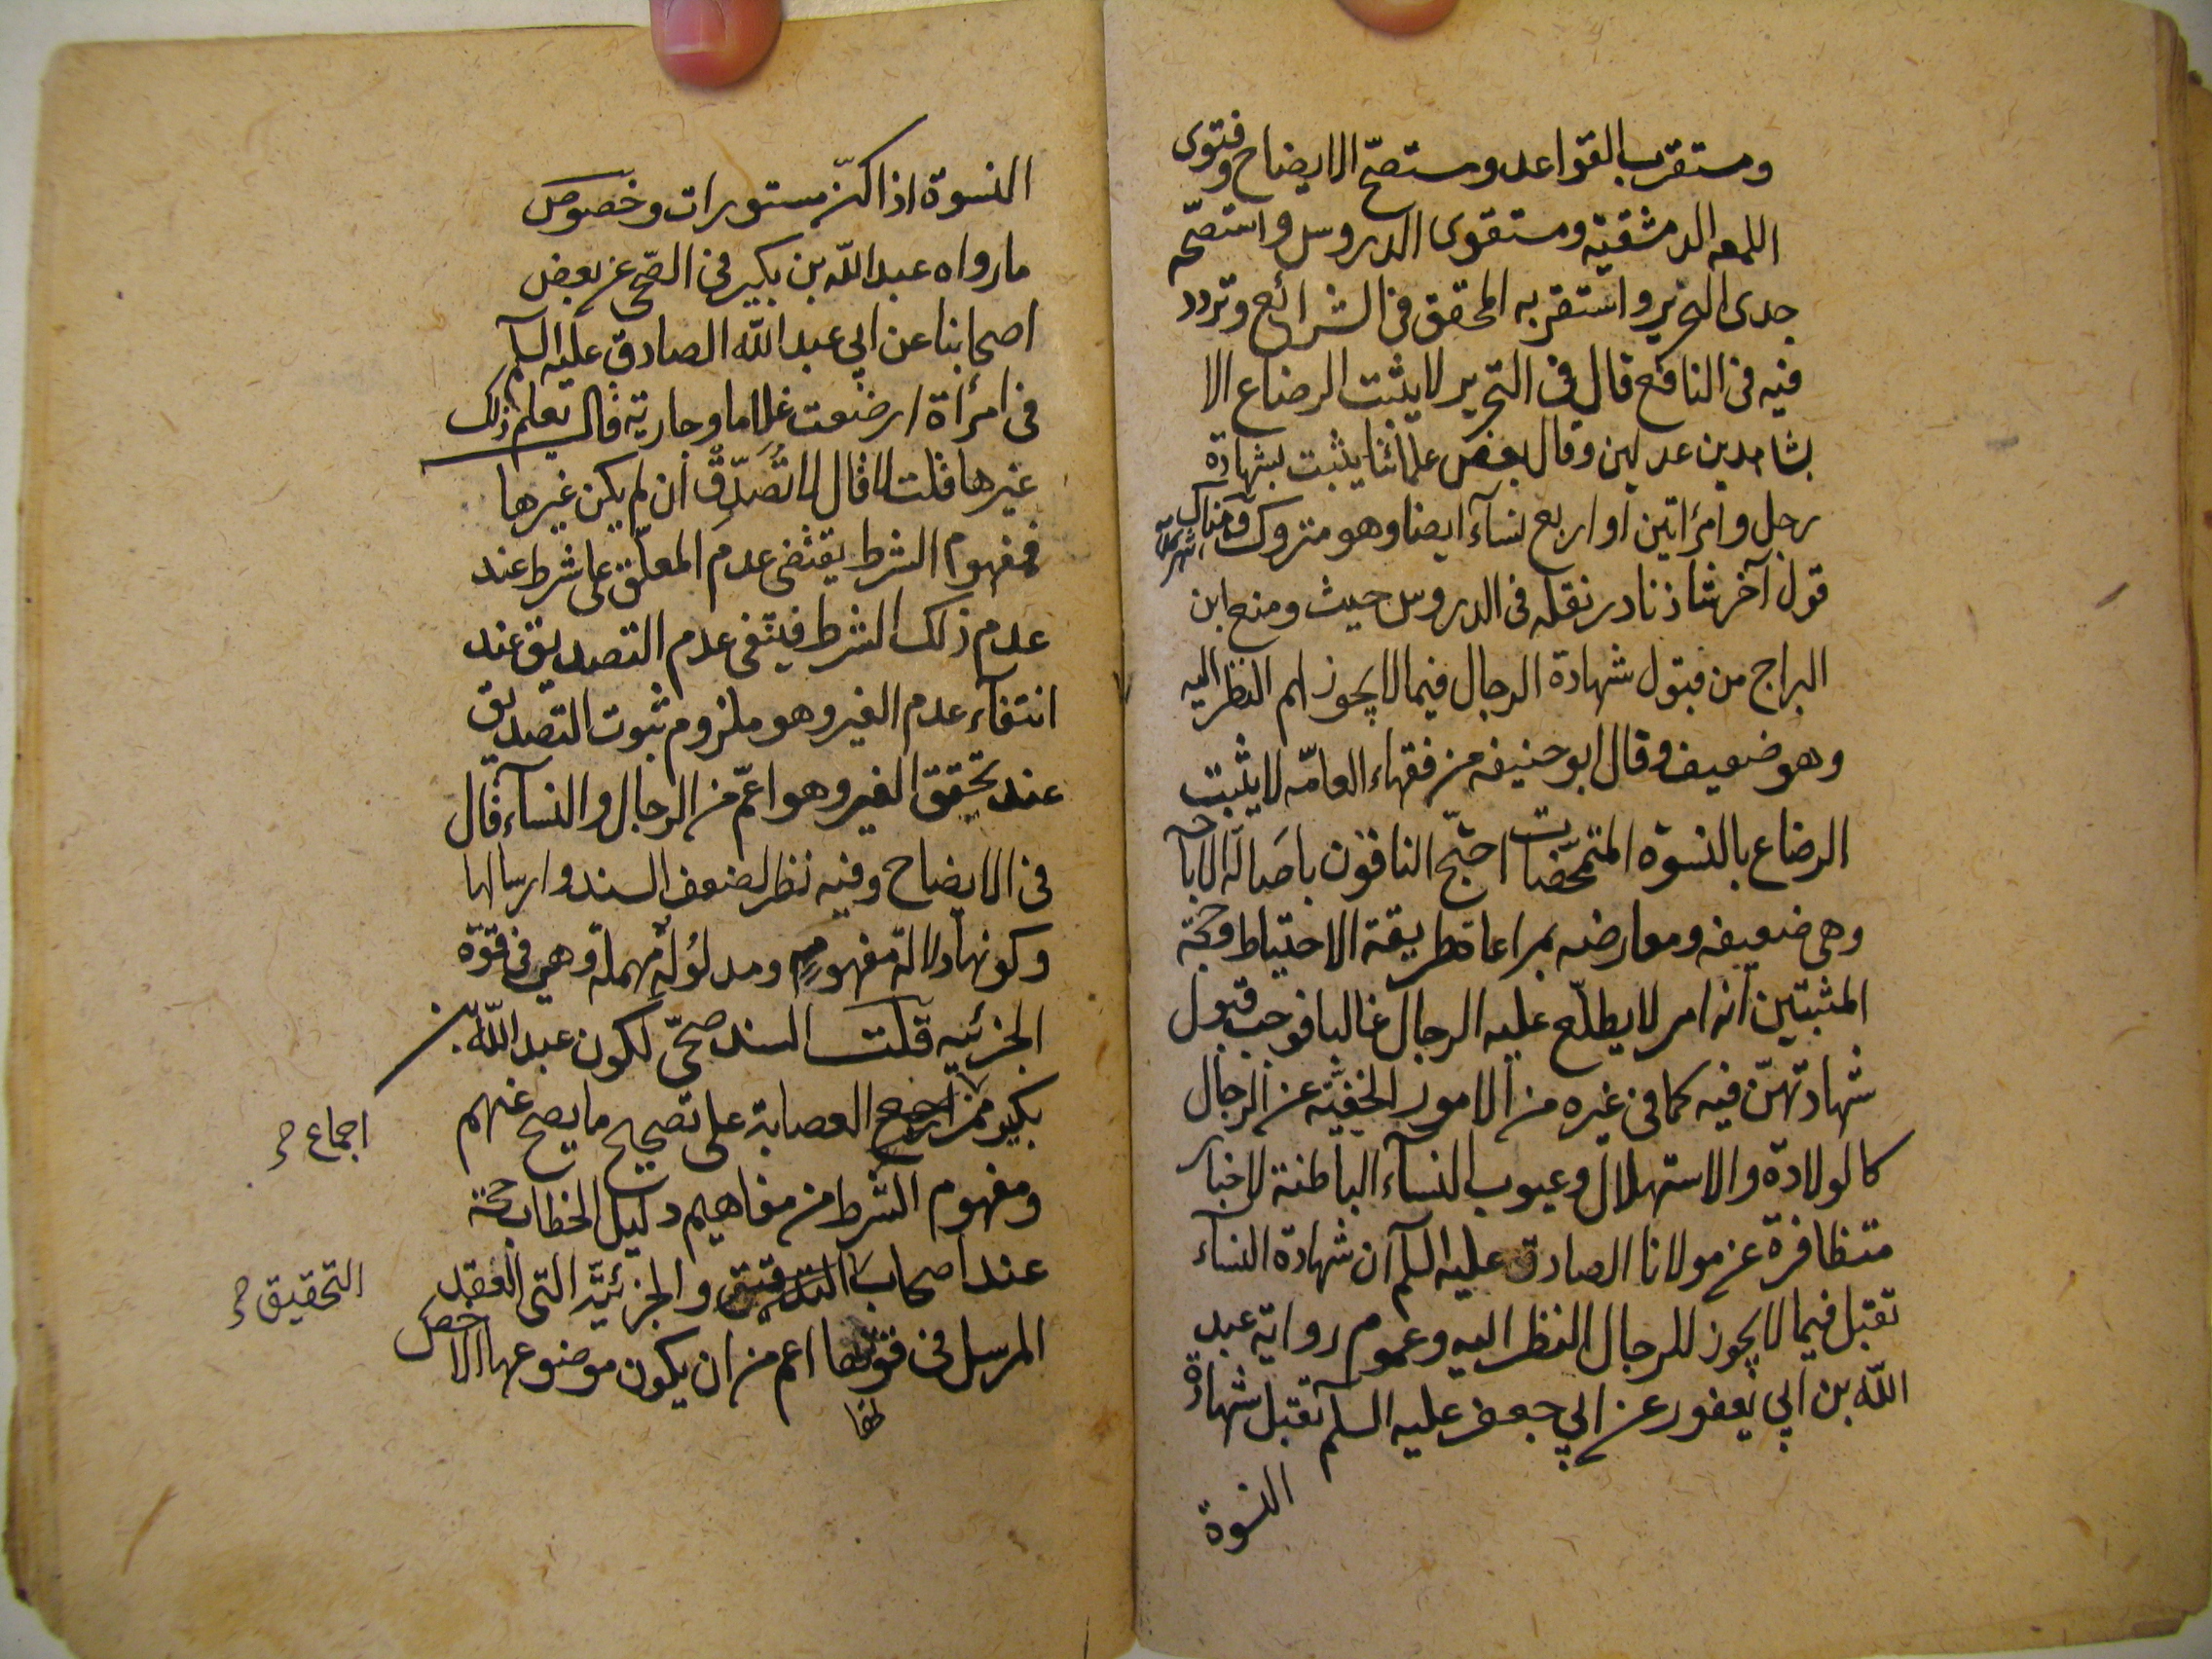 ومستقرب القواعد ومستصحّ الايضاح وفتوى
اللمعه الدمشقيّه ومستقوى الدروس واستصحّه
جدى النحرير واستقربه المحقق فى الشرائع وتردد
فيه فى النافع قال فى التحرير لا يثبت الرضاع الا
بشاهدين عدلين وقال بعض علمائنا يثبت بشهادة
رجل وامرأتين او اربع نسآء ايضا وهو متروك وهناك
قول آخر شاذ نادر نقله فى الدروس حيث ومنع ابن
البراج من قبول شهادة الرجال فيما لا يجوز لهم النظر اليه
وهو ضعيف وقال ابو حنيفه من فقهاء العامّه لا يثبت
الرضاع بالنسوة المتمحّضات احتجّ النافون باصالة الاباحة
وهى ضعيفه ومعارضه بمراعاة طريقة الاحتياط وحجّة
المثبتين انه امر لا يطلّع عليه الرجال غالبا فوجب قبول
شهادتهنّ فيه كما فى غيره من الامور الخفيّة عن الرجال
كالولادة والاستهلال وعيوب النسآء الباطنة لاخبار
متظافرة عن مولانا الصادق عليه السلم ان شهادة النسآء
تقبل فيما لا يجوز للرجال النظر اليه وعموم رواية عبد
الله بن ابي يعفور عن ابي جعفر عليه السلم تقبل شهادة
النسوة
النسوة اذا كنّ مستورات وخصوص
ما رواه عبد الله بن بكير فى الصّحى عن بعض
اصحابنا عن ابي عبد الله الصادق عليه السلم
فى امرأة ارضعت غلاما وجارية قال يعلم ذلك
غيرها قلت لا قال لا تُصَدَّق ان لم يكن غيرها
فمفهوم الشرط يقتضى عدم المعلّق على شرط عند
عدم ذلك الشرط فينتفى عدم التصديق عند
انتفآء عدم الغير وهو ملزوم ثبوت التصديق
عند تحقق الغير وهو اعمّ من الرجال والنسآء قال
فى الايضاح وفيه نظر لضعف السند وارسالها
وكونها دلالة مفهوم ومدلوله مهملة وهى فى قوّة
الجزئيه قلت السند صحّى لكون عبد الله بن
بكير ممن اجمع العصابة على تصحيح ما يصح عنهم
اجماع
ومفهوم الشرط من مفاهيم دليل الخطاب حجة
عند اصحاب التدقيق والجزئيّة التى العقد
التحقيق
المرسل فى قوتها اعم من ان يكون موضوعها الاخص